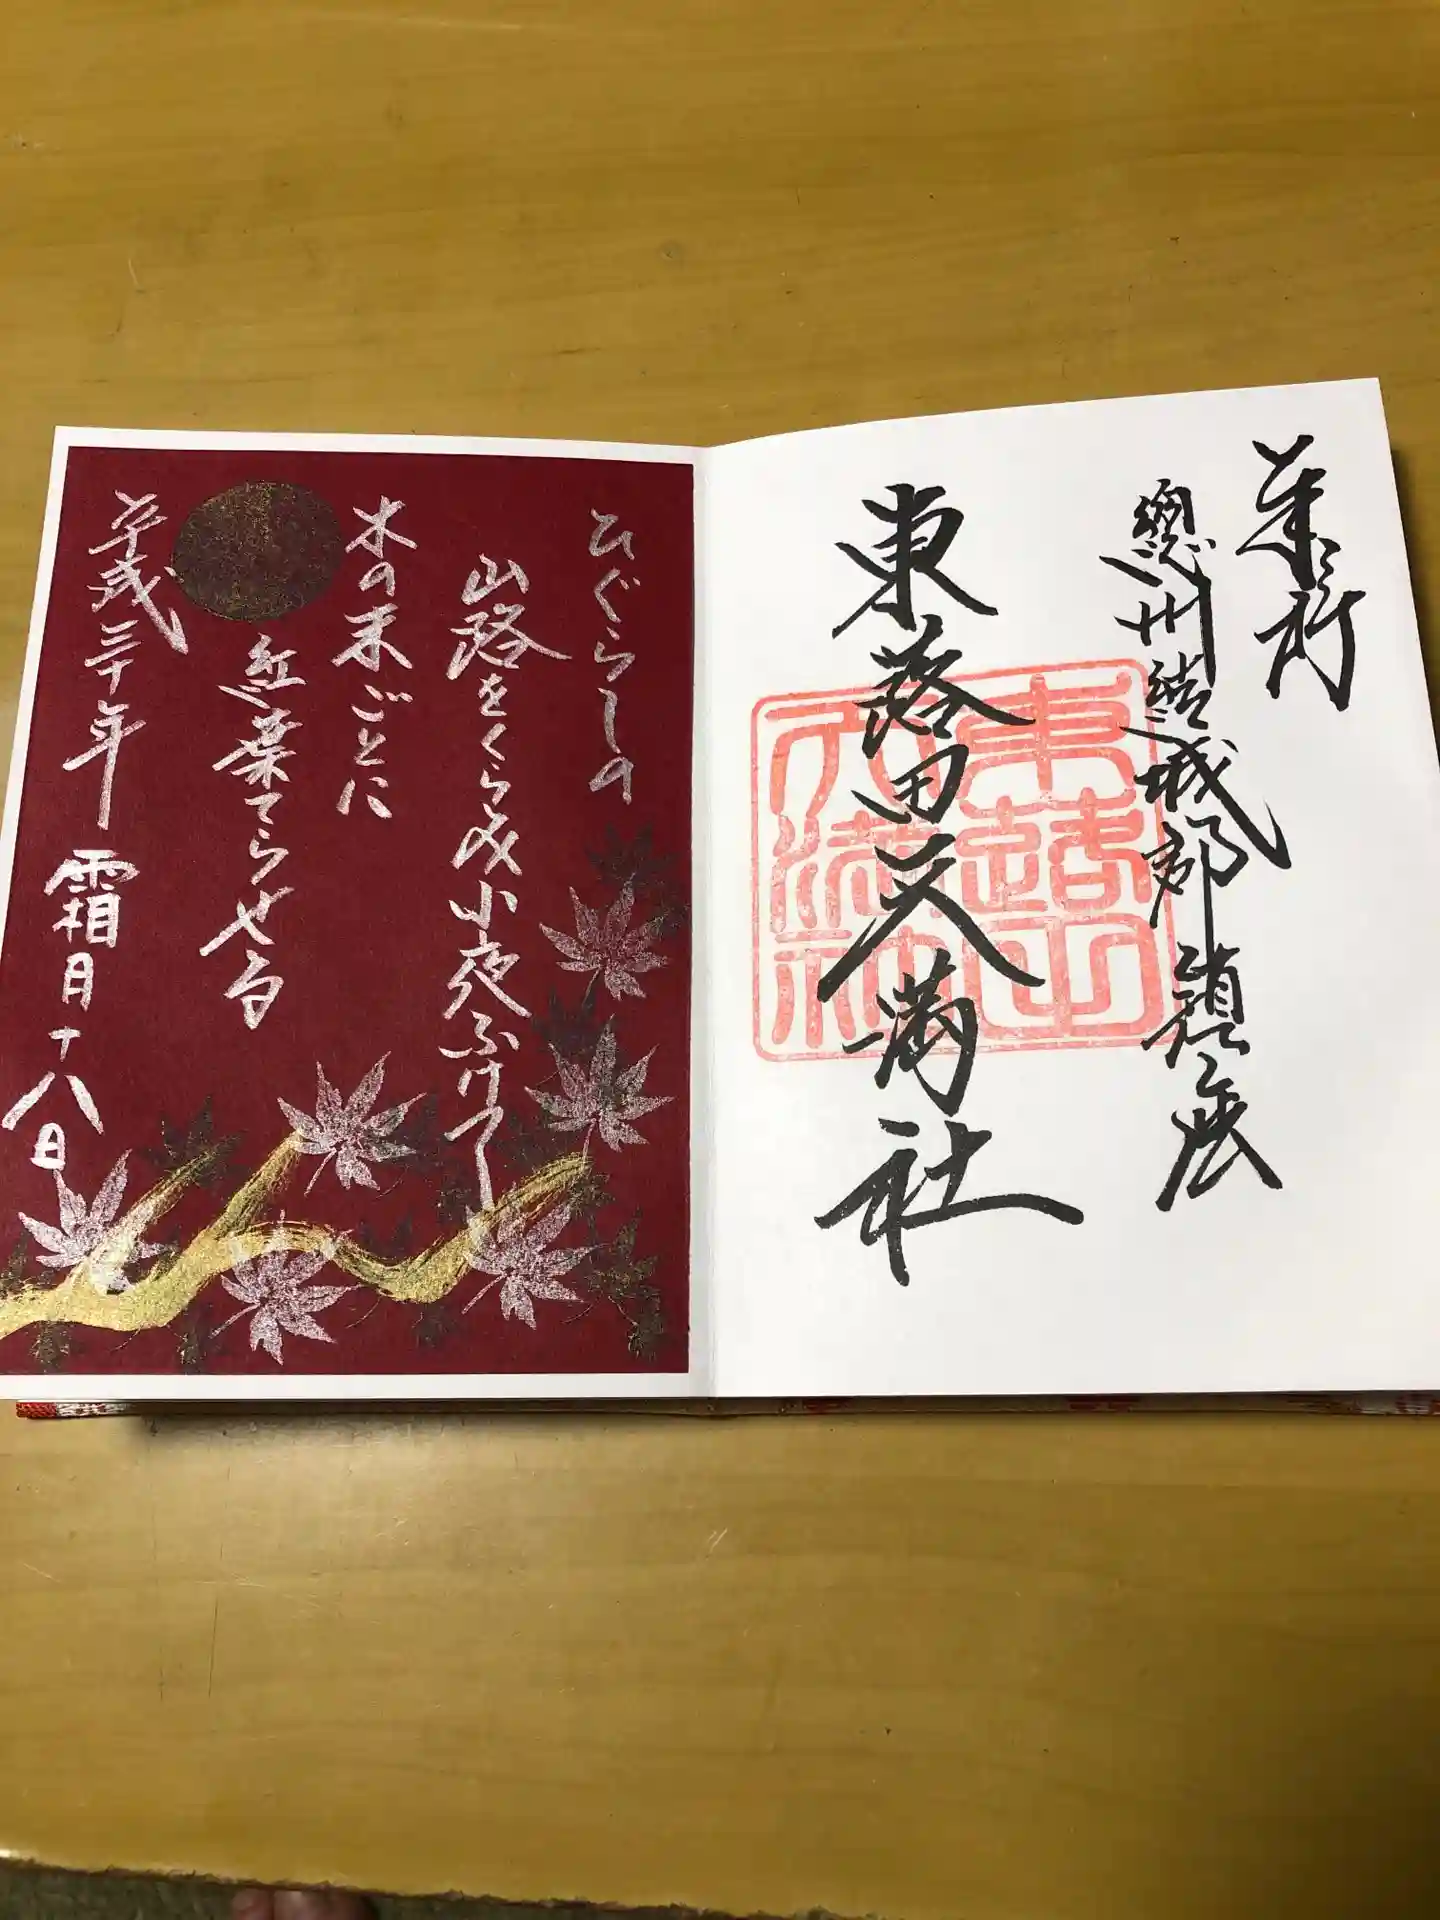 奉拝
總州結城郡鎮座
東蕗田天満社
ひぐらしの
山路をくらみ小夜ふけて
木の末ごとに
紅葉てらせる
平成三十年 霜月十八日